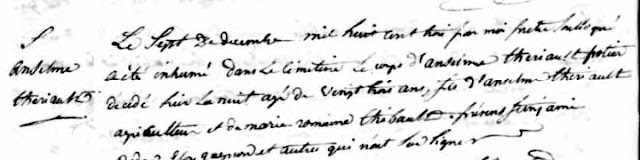 S
anselme
theriault
Le Sept De decembre mil huit cent trois par moi pretre Sousigné
a été inhumé dans Le Cimetiere Le corps d'anselme theriault potier
decedé hier La nuit agé de Vengt trois ans, fils d'anselme theriault
agriculteur et de marie romaine thebault. présens benjami
et autres qui n'ont Su Signer